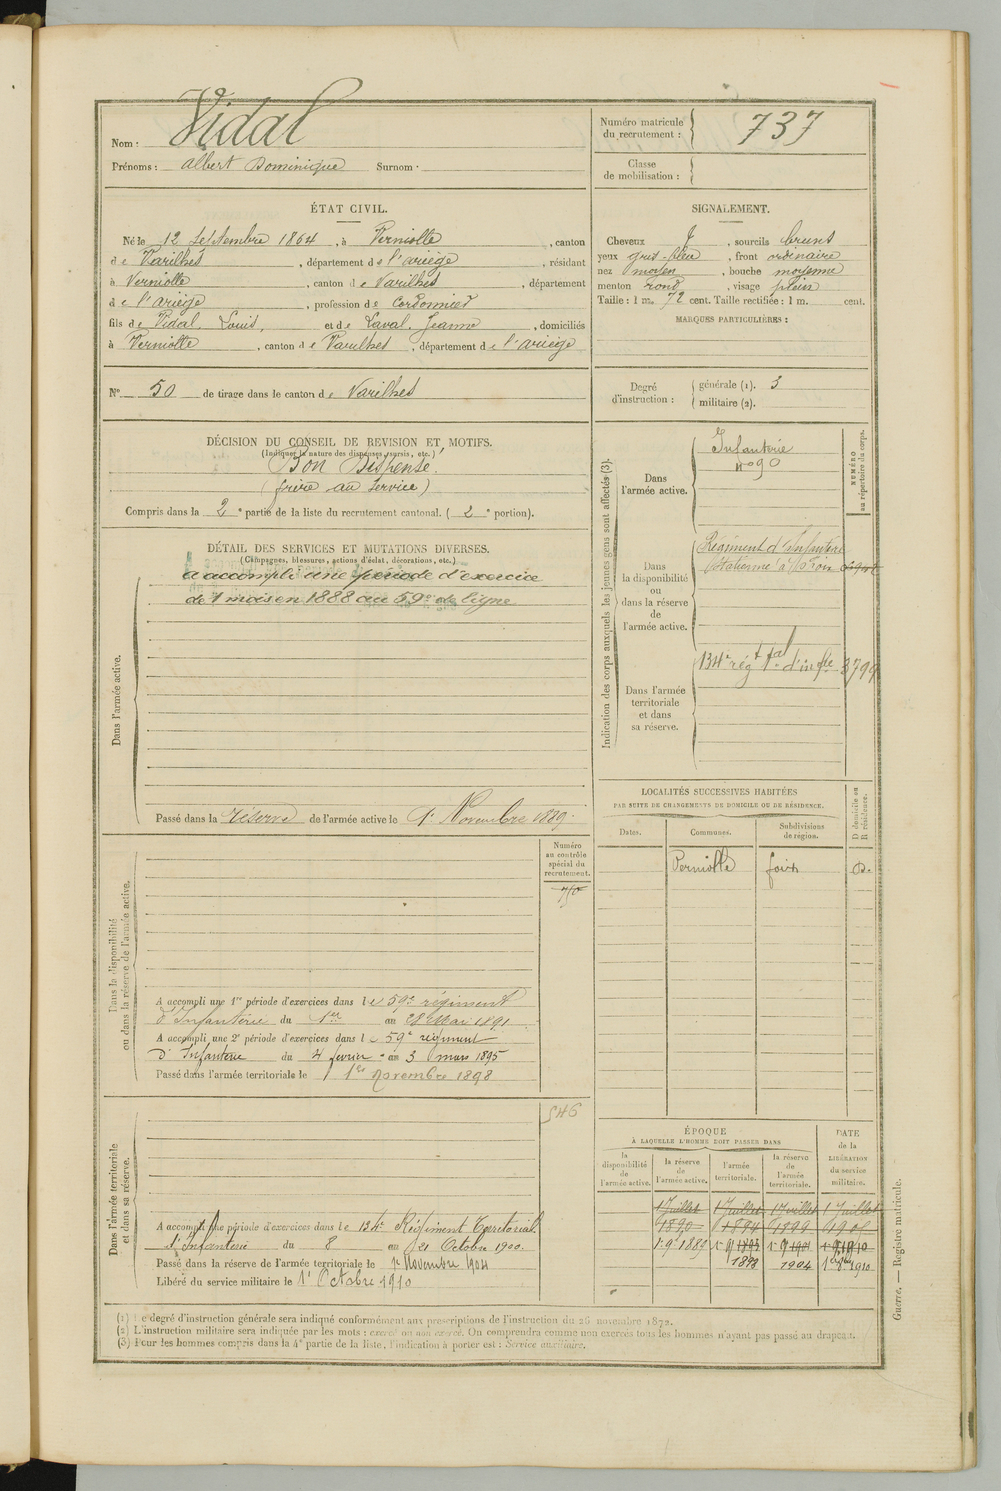 Nom : Vidal
Prénoms : Albert Dominique Surnom :
Numéro matricule du recrutement : 737
Classe de mobilisation :
ÉTAT CIVIL.
Né le 12 Septembre 1864, à Verniolle, canton
de Varilhes, département de l'ariège, résidant
à Verniolle, canton de Varilhes, département
de l'ariège, profession de Cordonnier
fils de Vidal, Louis, et de Laval, Jeanne, domiciliés
à Verniolle, canton de Varilhes, département de l'ariège
SIGNALEMENT.
Cheveux , sourcils bruns
yeux gris-bleu, front ordinaire
nez moyen, bouche moyenne
menton rond, visage plein
Taille : 1 m. 72 cent. Taille rectifiée : 1 m. cent.
MARQUES PARTICULIÈRES :
N° 50 de tirage dans le canton de Varilhes
Degré d'instruction :
générale (1). 3
militaire (2).
DÉCISION DU CONSEIL DE REVISION ET MOTIFS.
(Indiquer la nature des dispenses, sursis, etc.)
Bon Dispensé.
(frère au service)
Compris dans la 2e partie de la liste du recrutement cantonal. ( 2e portion).
DÉTAIL DES SERVICES ET MUTATIONS DIVERSES.
(Campagnes, blessures, actions d'éclat, décorations, etc.)
Dans l'armée active.
a accompli une période d'exercice
de 1 mois en 1888 au 59e de ligne
Passé dans la réserve de l'armée active le 1r Novembre 1889.
Indication des corps auxquels les jeunes gens sont affectés (3).
NUMÉRO au répertoire du corps.
Dans l'armée active.
Infanterie
n° 90
Dans la disponibilité ou dans la réserve de l'armée active.
Régiment d'Infanterie
stationné à Foix
Dans l'armée territoriale et dans sa réserve.
134e régt tal d'infie 3799
LOCALITÉS SUCCESSIVES HABITÉES
PAR SUITE DE CHANGEMENTS DE DOMICILE OU DE RÉSIDENCE.
Dates. Communes. Subdivisions de région. D domicile ou R résidence.
Verniolle foix D.
Dans la disponibilité ou dans la réserve de l'armée active.
Numéro au contrôle spécial du recrutement.
A accompli une 1re période d'exercices dans le 59e régiment
d'Infanterie du 1er au 28 Mai 1891.
A accompli une 2e période d'exercices dans le 59e régiment
d'Infanterie du 4 février au 3 mars 1895
Passé dans l'armée territoriale le 1er Novembre 1898
Dans l'armée territoriale et dans sa réserve.
546
A accompli une période d'exercices dans le 134e Régiment Territorial
d'Infanterie du 8 au 21 Octobre 1900.
Passé dans la réserve de l'armée territoriale le 1r Novembre 1904
Libéré du service militaire le 1r Octobre 1910
ÉPOQUE
À LAQUELLE L'HOMME DOIT PASSER DANS
DATE de la LIBÉRATION du service militaire.
la disponibilité de l'armée active.
la réserve de l'armée active.
l'armée territoriale.
la réserve de l'armée territoriale.
1 Juillet 1 Juillet 1 Juillet 1 Juillet
1890 1894 1899 1905
1r 9 1889
1898 1904
(1) Le degré d'instruction générale sera indiqué conformément aux prescriptions de l'instruction du 26 novembre 1872.
(2) L'instruction militaire sera indiquée par les mots : exercé ou non exercé. On comprendra comme non exercés tous les hommes n'ayant pas passé au drapeau.
(3) Pour les hommes compris dans la 4e partie de la liste, l'indication à porter est : Service auxiliaire.
Guerre. — Registre matricule.